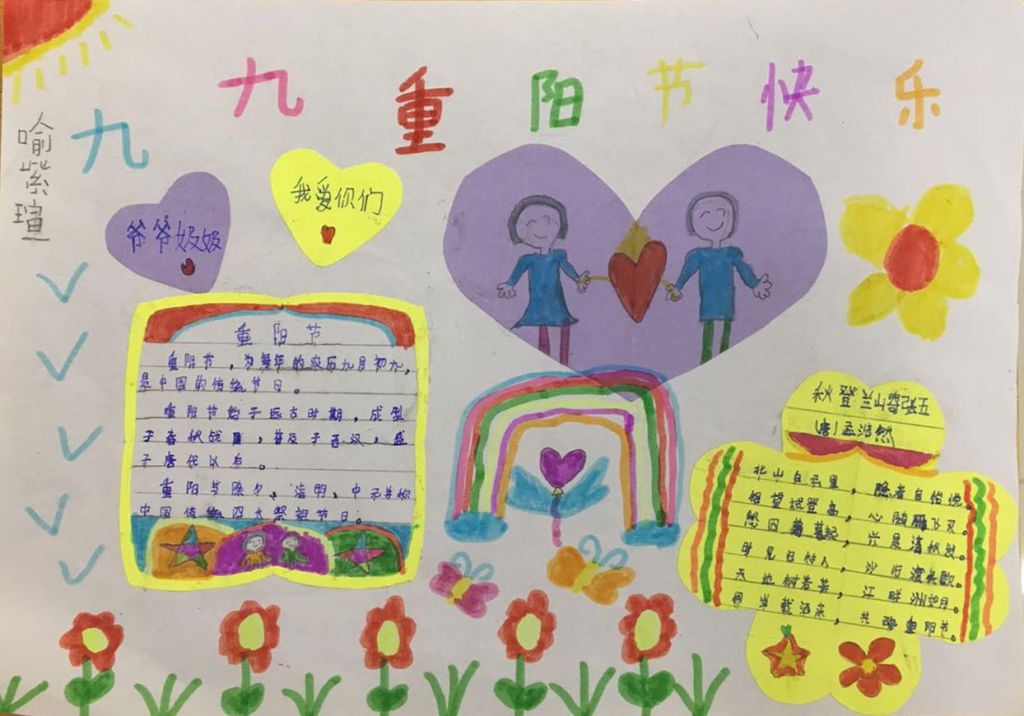 九九重阳节快乐
喻紫瑄
爷爷奶奶
我爱你们
重阳节
重阳节，为每年的农历九月初九，
是中国的传统节日。
重阳节始于远古时期，成型
于春秋战国，普及于西汉，盛
于唐代以后。
重阳与除夕、清明、中元并称
中国传统四大祭祖节日。
秋登兰山寄张五
(唐)孟浩然
北山白云里，隐者自怡悦。
相望试登高，心随雁飞灭。
愁因薄暮起，兴是清秋发。
时见归村人，沙行渡头歇。
天边树若荠，江畔洲如月。
何当载酒来，共醉重阳节。